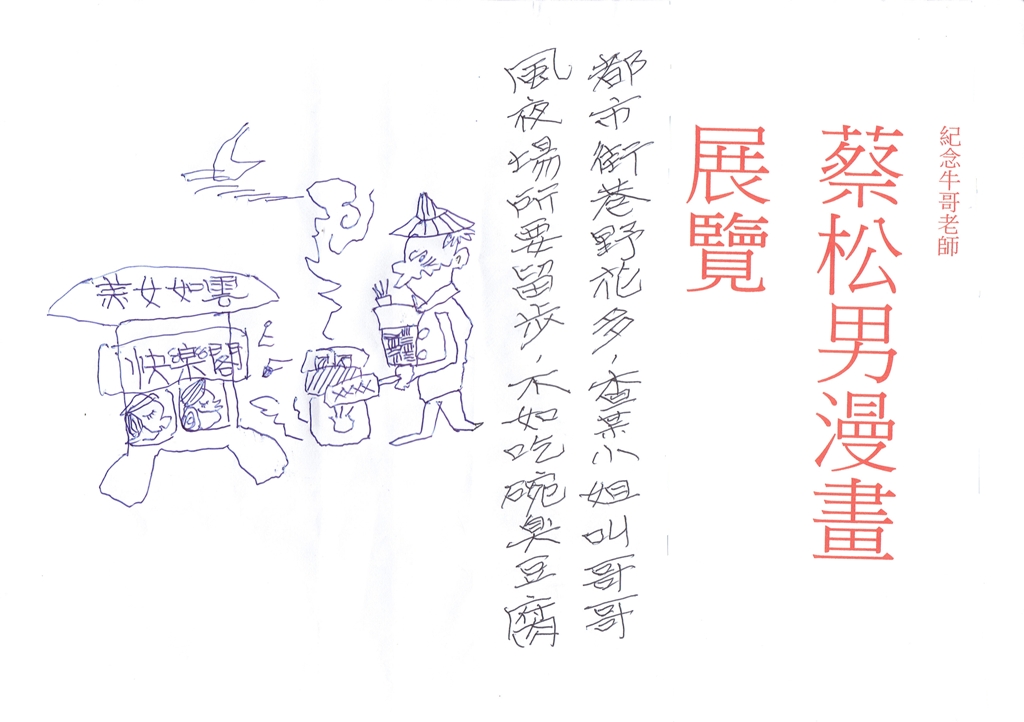 紀念牛哥老師
蔡松男漫畫
展覽
都市街巷野花多，小姐叫哥哥
風夜場所要留步，不如吃碗臭豆腐
美女如雲
快樂閣